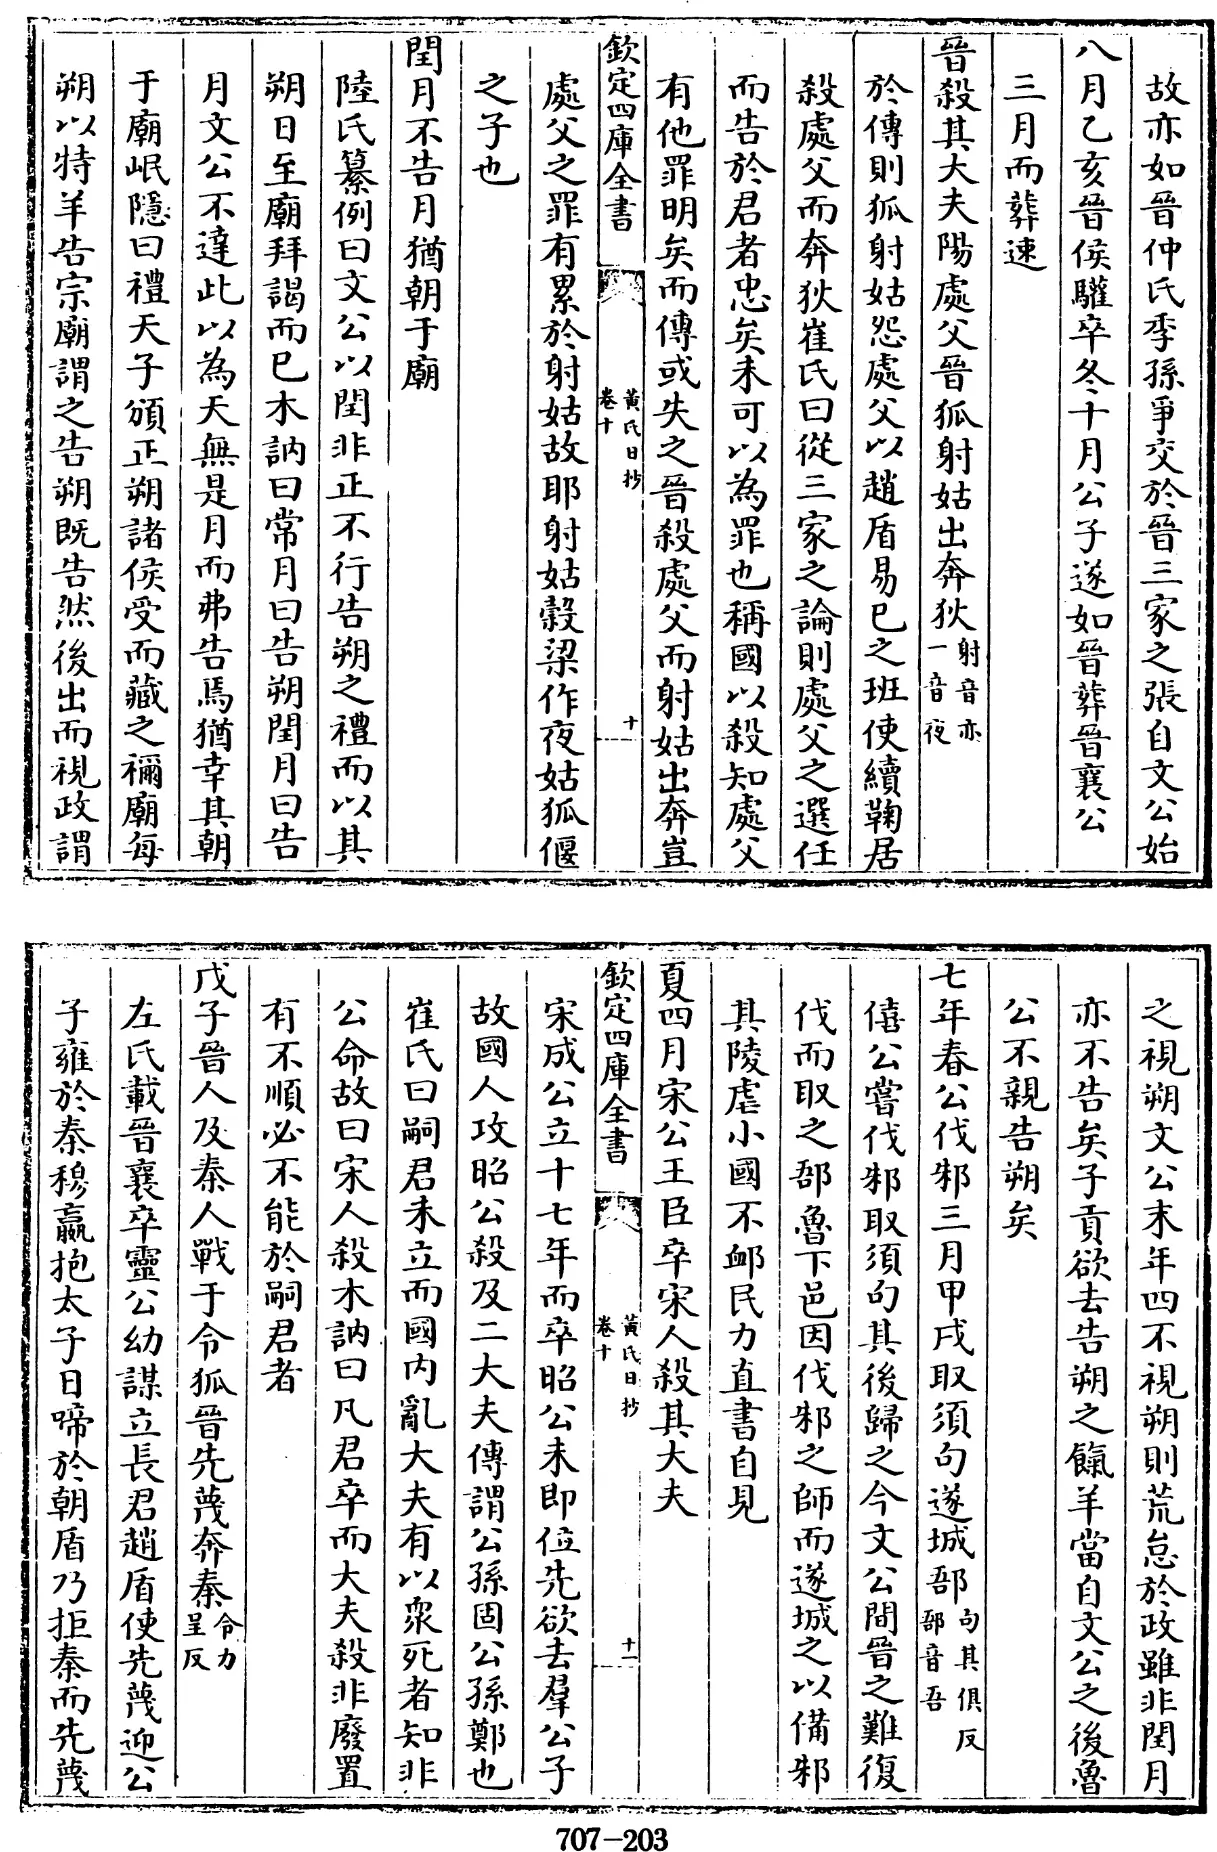 故亦如晉仲氏季孫爭交於晉三家之張自文公始
八月乙亥晉侯驩卒冬十月公子遂如晉葬晉襄公
三月而葬速
晉殺其大夫陽處父晉狐射姑出奔狄射音亦一音夜
於傳則狐射姑怨處父以趙盾易已之班使續鞠居
殺處父而奔狄崔氏曰從三家之論則處父之選任
而告於君者忠矣未可以為罪也稱國以殺知處父
有他罪明矣而傳或失之晉殺處父而射姑出奔豈
欽定四庫全書
黃氏日抄
卷十
十
處父之罪有累於射姑故耶射姑穀梁作夜姑狐偃
之子也
閏月不告月猶朝于廟
陸氏纂例曰文公以閏非正不行告朔之禮而以其
朔日至廟拜謁而已木訥曰常月曰告朔閏月曰告
月文公不達此以為天無是月而弗告焉猶幸其朝
于廟岷隱曰禮天子頒正朔諸侯受而藏之禰廟每
朔以特羊告宗廟謂之告朔既告然後出而視政謂
之視朔文公末年四不視朔則荒怠於政雖非閏月
亦不告矣子貢欲去告朔之餼羊當自文公之後魯
公不親告朔矣
七年春公伐邾三月甲戌取須句遂城郚句其俱反郚音吾
僖公嘗伐邾取須句其後歸之今文公間晉之難復
伐而取之郚魯下邑因伐邾之師而遂城之以備邾
其陵虐小國不卹民力直書自見
夏四月宋公王臣卒宋人殺其大夫
欽定四庫全書
黃氏日抄
卷十
十一
宋成公立十七年而卒昭公未即位先欲去羣公子
故國人攻昭公殺及二大夫傳謂公孫固公孫鄭也
崔氏曰嗣君未立而國内亂大夫有以衆死者知非
公命故曰宋人殺木訥曰凡君卒而大夫殺非廢置
有不順必不能於嗣君者
戊子晉人及秦人戰于令狐晉先蔑奔秦令力呈反
左氏載晉襄卒靈公幼謀立長君趙盾使先蔑迎公
子雍於秦穆嬴抱太子日啼於朝盾乃拒秦而先蔑
707-203